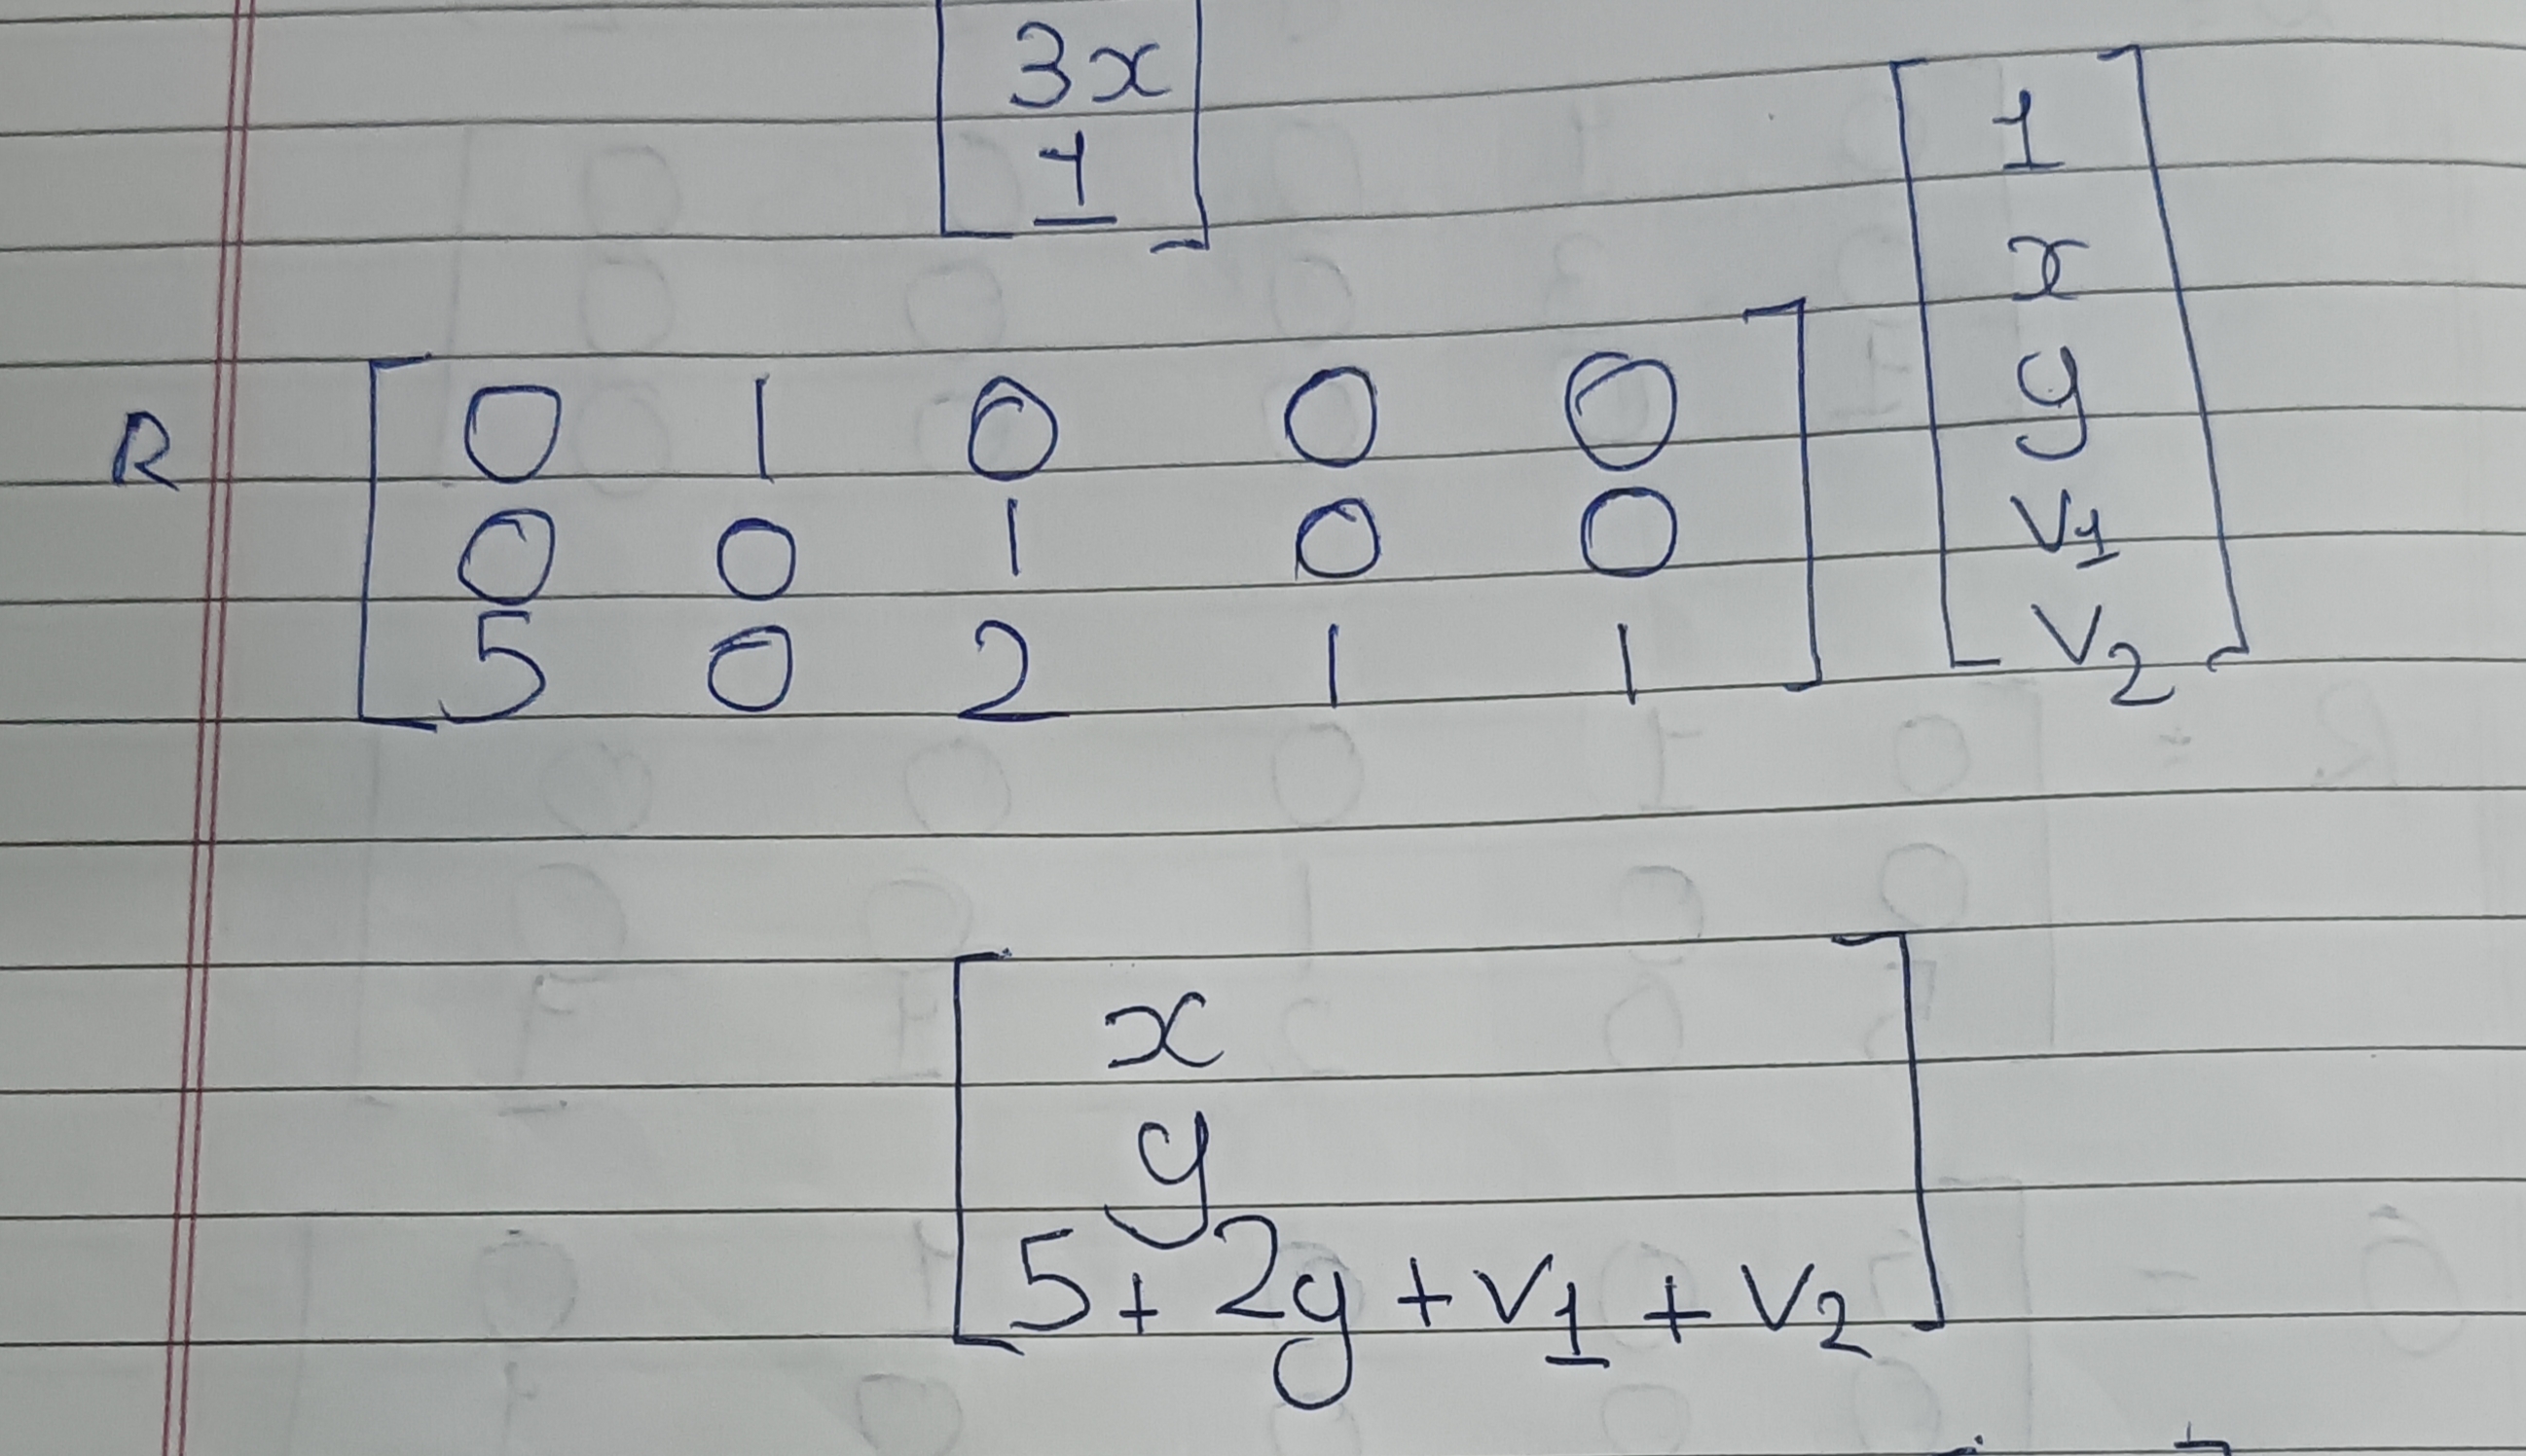 3x
1
R
0 1 0 0 0
0 0 1 0 0
5 0 2 1 1
1
x
y
v1
v2
x
y
5 + 2y + v1 + v2